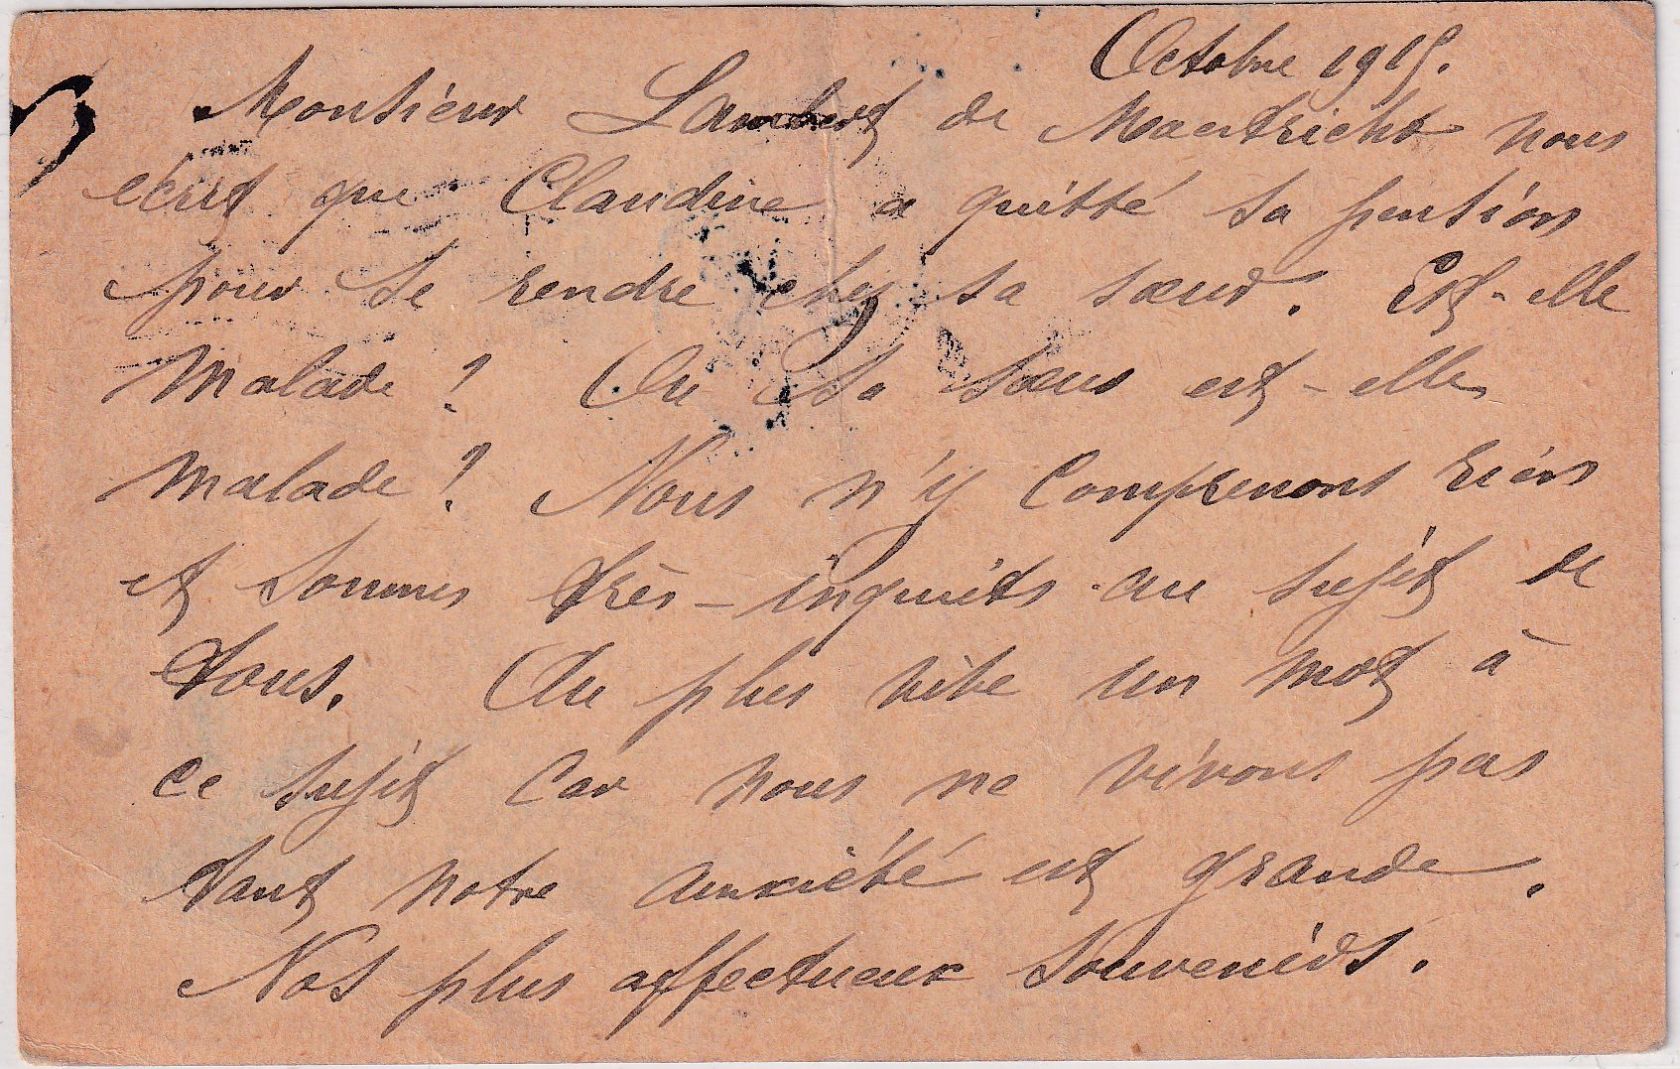 Octobre 1915.
Monsieur Lambert de Maestricht nous
écrit que Claudine a quitté sa pension
pour se rendre chez sa sœur. Est-elle
malade ? Ou sa sœur est-elle
malade ? Nous n'y comprenons rien
et sommes très-inquiets au sujet de
tous. Au plus vite un mot à
ce sujet car nous ne vivons pas
tant notre anxiété est grande.
Nos plus affectueux souvenirs.